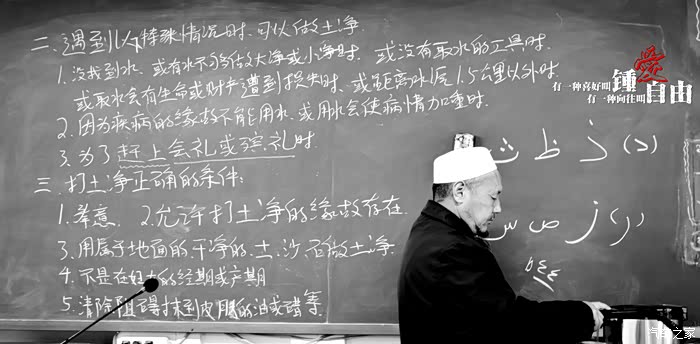 二.遇到以下特殊情况时,可以做土净
1.没找到水、或有水不够做大净或小净时、或没有取水的工具时.
或取水会有生命或财产遭到损失时、或距离水源1.5公里以外时.
2.因为疾病的缘故不能用水、或用水会使病情加重时.
3.为了赶上会礼或殡礼时
三.打土净正确的条件:
1.举意. 2.允许打土净的缘故存在.
3.用属于地面的干净的土.沙.石做土净.
4.不是在妇女的经期或产期
5.清除阻碍抹到皮肤的油或蜡等
有一种喜好叫 鍾愛
有一种向往叫 自由
(د) ذ ظ ث
(ر) ز ص س